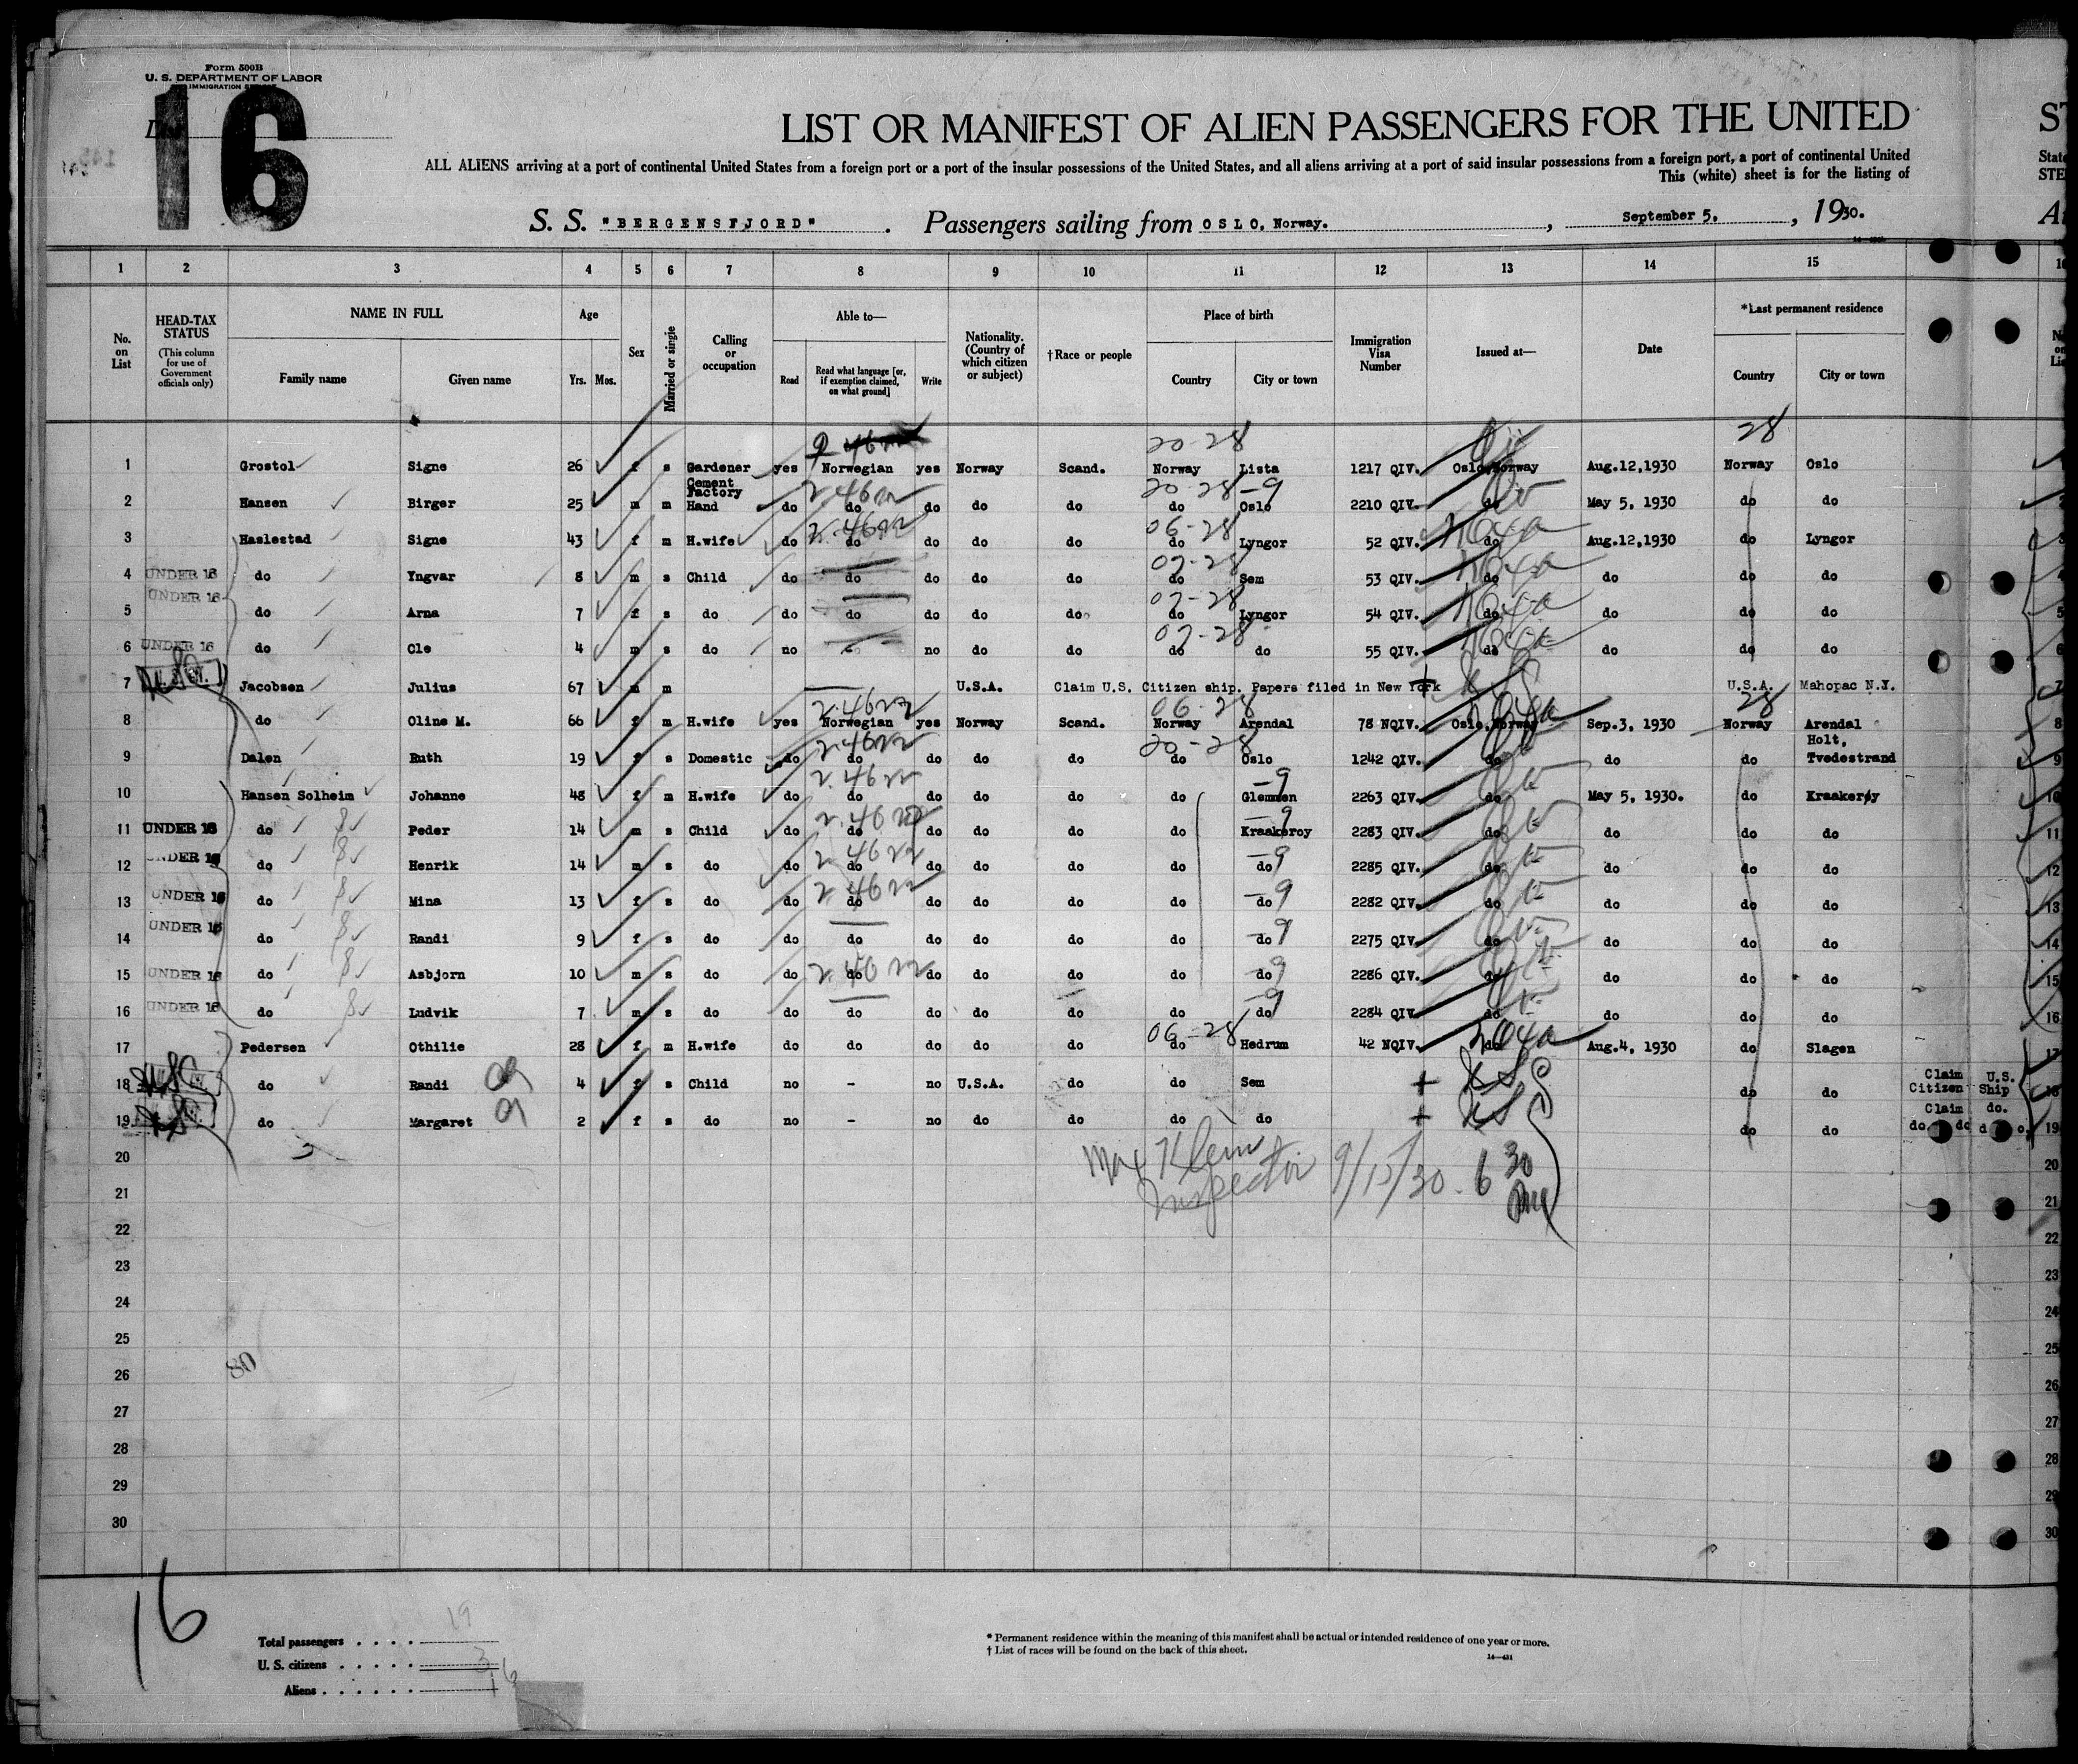 Form 500B
U. S. DEPARTMENT OF LABOR
IMMIGRATION
16
LIST OR MANIFEST OF ALIEN PASSENGERS FOR THE UNITED
ALL ALIENS arriving at a port of continental United States from a foreign port or a port of the insular possessions of the United States, and all aliens arriving at a port of said insular possessions from a foreign port, a port of continental United
This (white) sheet is for the listing of
S. S. "BERGENSFJORD". Passengers sailing from OSLO, Norway. , September 5, , 1930.
1 2 3 4 5 6 7 8 9 10 11 12 13 14 15
No. on List
HEAD-TAX STATUS
(This column for use of Government officials only)
NAME IN FULL
Family name Given name
Age
Yrs. Mos.
Sex
Married or single
Calling or occupation
Able to—
Read
Read what language [or, if exemption claimed, on what ground]
Write
Nationality. (Country of which citizen or subject)
†Race or people
Place of birth
Country City or town
Immigration Visa Number
Issued at—
Date
*Last permanent residence
Country City or town
20-28 28
1 Grostol Signe 26 f s Gardener yes Norwegian yes Norway Scand. Norway Lista 1217 QIV. Oslo, Norway Aug.12,1930 Norway Oslo
20-28 -9
2 Hansen Birger 25 m m Cement Factory Hand do do do do do do Oslo 2210 QIV. do May 5, 1930 do do
06-28
3 Haslestad Signe 43 f m H.wife do do do do do do Lyngor 52 QIV. do Aug.12,1930 do Lyngor
07-28
4 UNDER 16 do Yngvar 8 m s Child do do do do do do Sem 53 QIV. do do do do
07-28
5 UNDER 16 do Arna 7 f s do do do do do do do Lyngor 54 QIV. do do do do
07-28
6 UNDER 16 do Ole 4 m s do no - no do do do do 55 QIV. do do do do
7 Jacobsen Julius 67 m m U.S.A. Claim U.S. Citizen ship. Papers filed in New York U.S.A. Mahopac N.Y.
06-28 28
8 do Oline M. 66 f m H.wife yes Norwegian yes Norway Scand. Norway Arendal 78 NQIV. Oslo, Norway Sep.3, 1930 Norway Arendal
20-28
9 Dalen Ruth 19 f s Domestic do do do do do do Oslo 1242 QIV. do do do Holt, Tvedestrand
-9
10 Hansen Solheim Johanne 48 f m H.wife do do do do do do Glemmen 2263 QIV. do May 5, 1930. do Kraakerøy
-9
11 UNDER 16 do Peder 14 m s Child do do do do do do Kraakeroy 2283 QIV. do do do do
12 UNDER 16 do Henrik 14 m s do do do do do do do do -9 2285 QIV. do do do do
13 UNDER 16 do Mina 13 f s do do do do do do do do -9 2282 QIV. do do do do
14 UNDER 16 do Randi 9 f s do do do do do do do do -9 2275 QIV. do do do do
15 UNDER 16 do Asbjorn 10 m s do do do do do do do do -9 2286 QIV. do do do do
16 UNDER 16 do Ludvik 7 m s do do do do do do do do -9 2284 QIV. do do do do
06-28
17 Pedersen Othilie 28 f m H.wife do do do do do do Hedrum 42 NQIV. do Aug.4, 1930 do Slagen
18 do Randi 4 f s Child no - no U.S.A. do do Sem do do Claim U.S. Citizen Ship
19 do Margaret 2 f s do no - no do do do do do do Claim do. do do do.
20
Max Klein
Inspector 9/15/30. 6 30
21
22
23
24
25
80
26
27
28
29
30
16
Total passengers . . . . 19
U. S. citizens . . . . . 3
Aliens . . . . . . 16
* Permanent residence within the meaning of this manifest shall be actual or intended residence of one year or more.
† List of races will be found on the back of this sheet.
14—431